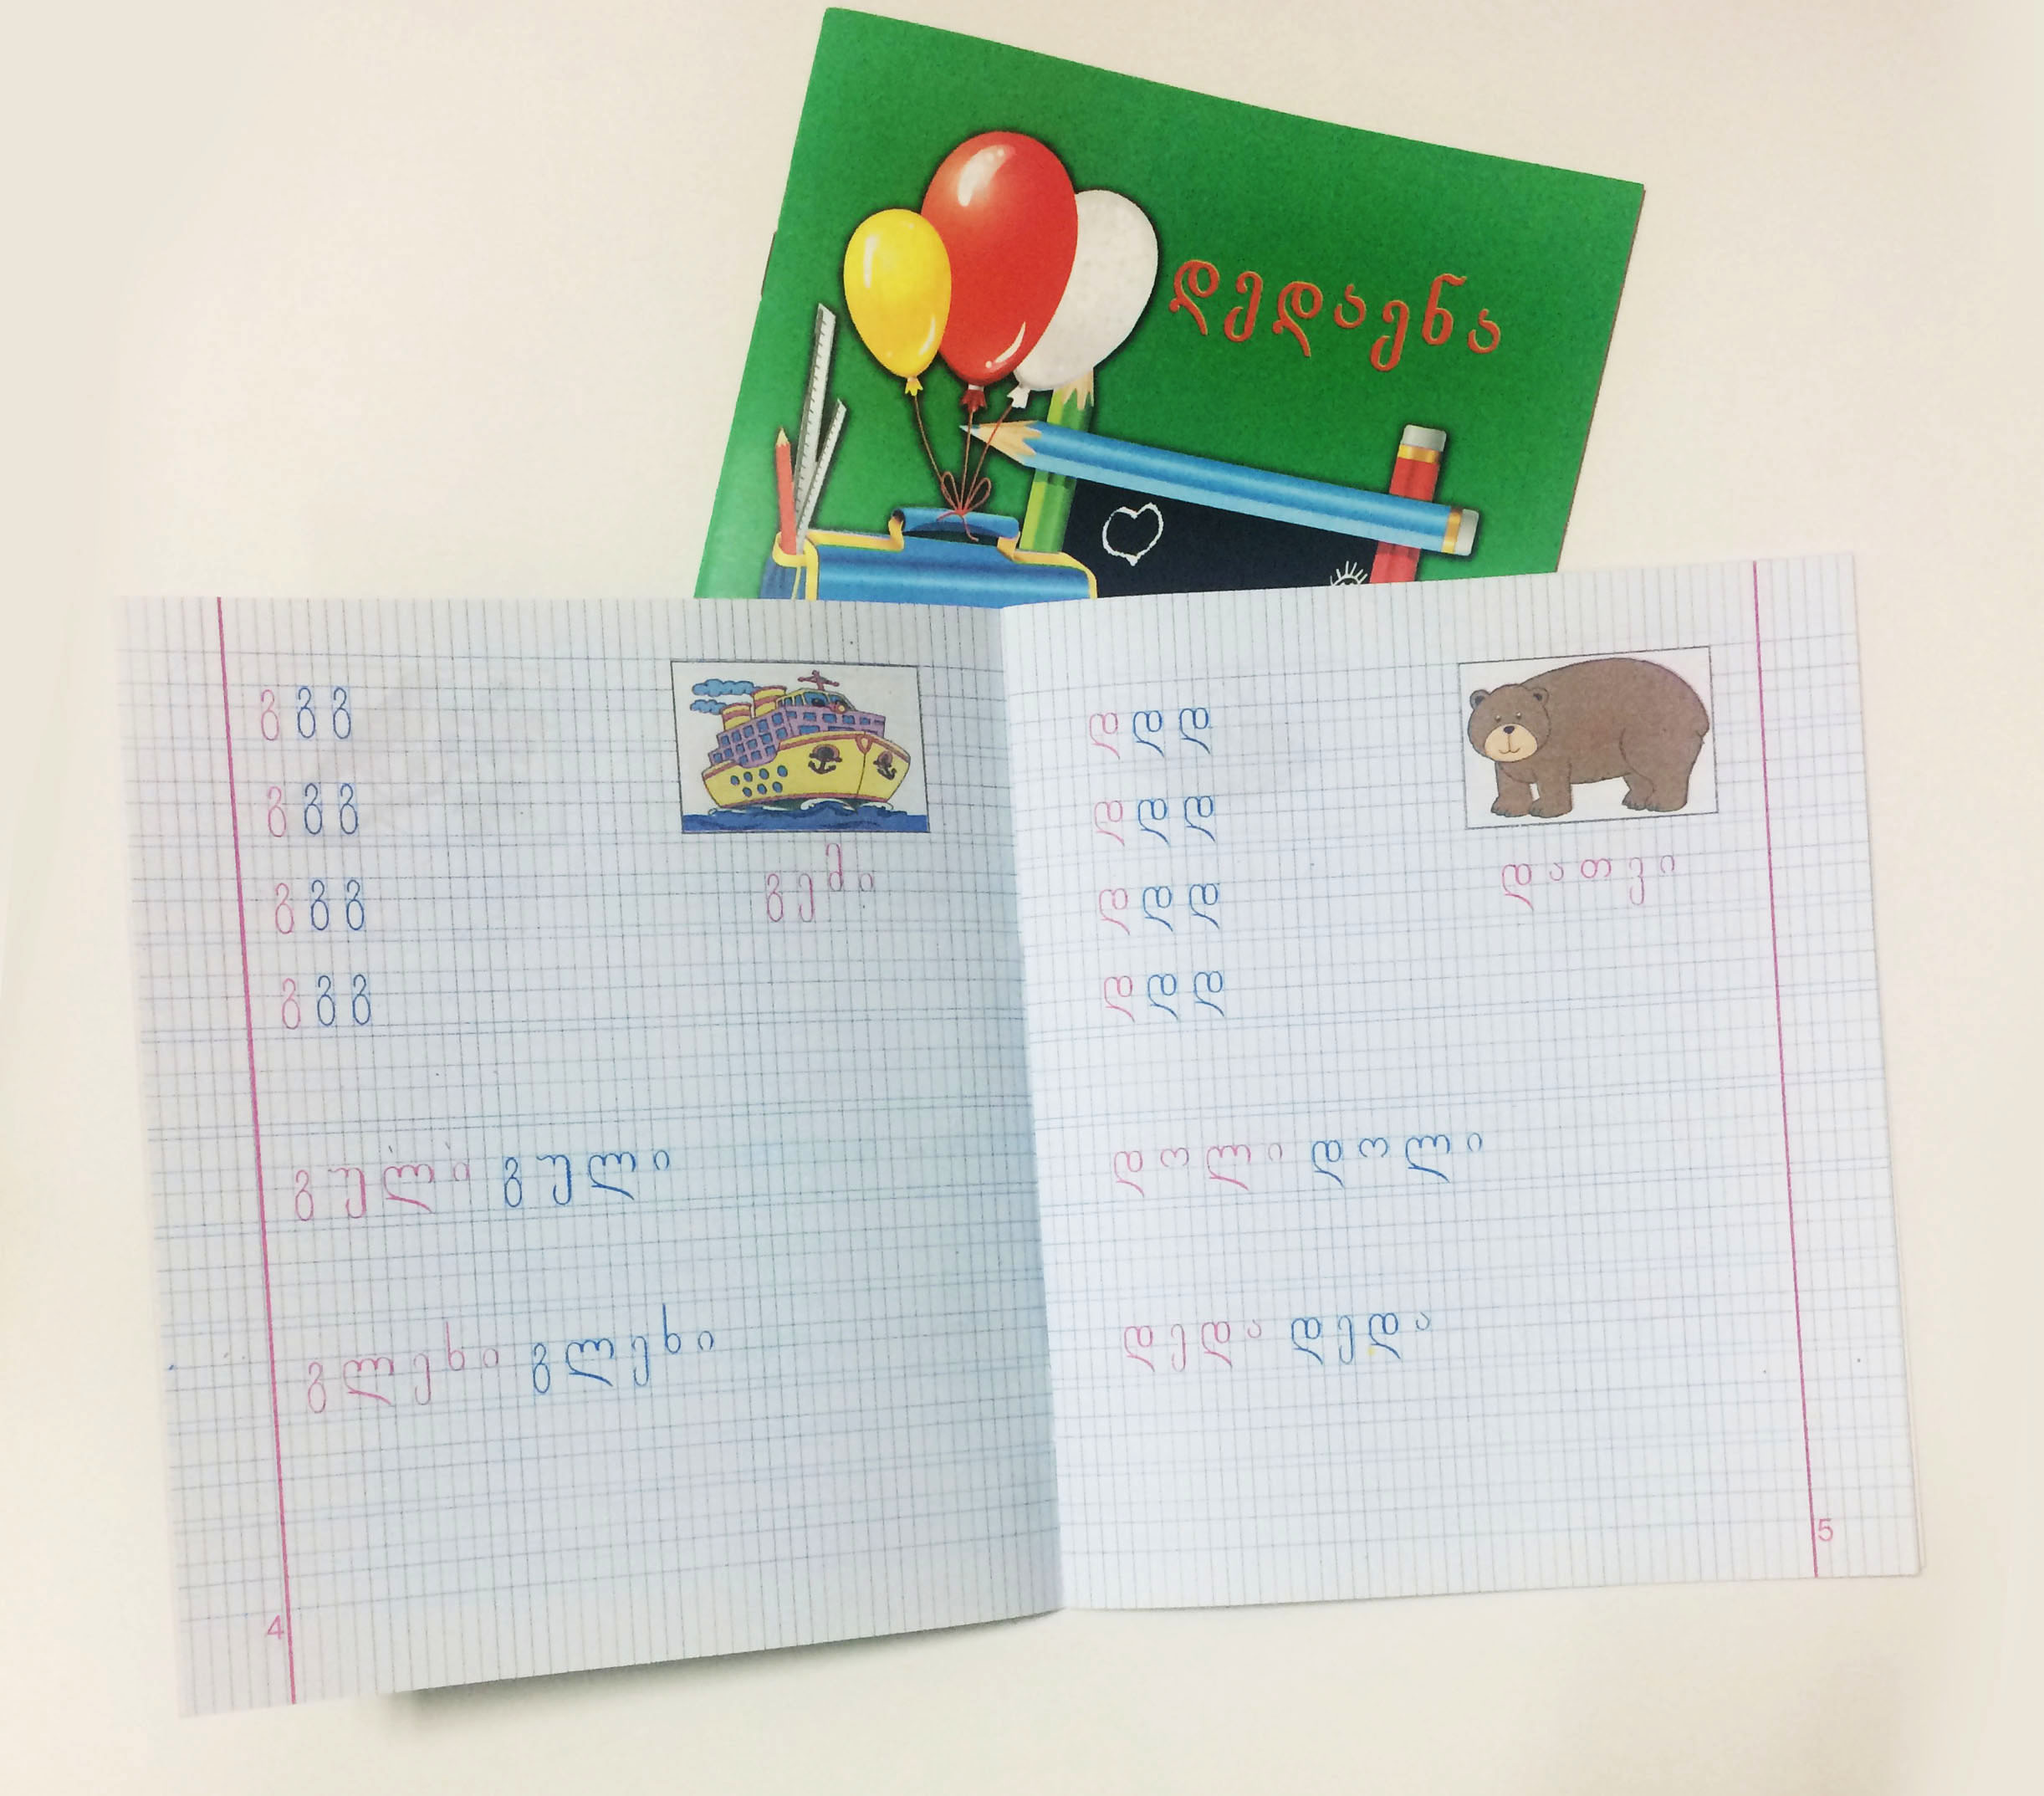 დედაენა
გ გ გ
გ გ გ
გ გ გ
გ გ გ
გემი
გული გული
გლეხი გლეხი
4
დ დ დ
დ დ დ
დ დ დ
დ დ დ
დათვი
დოლი დოლი
დედა დედა
5